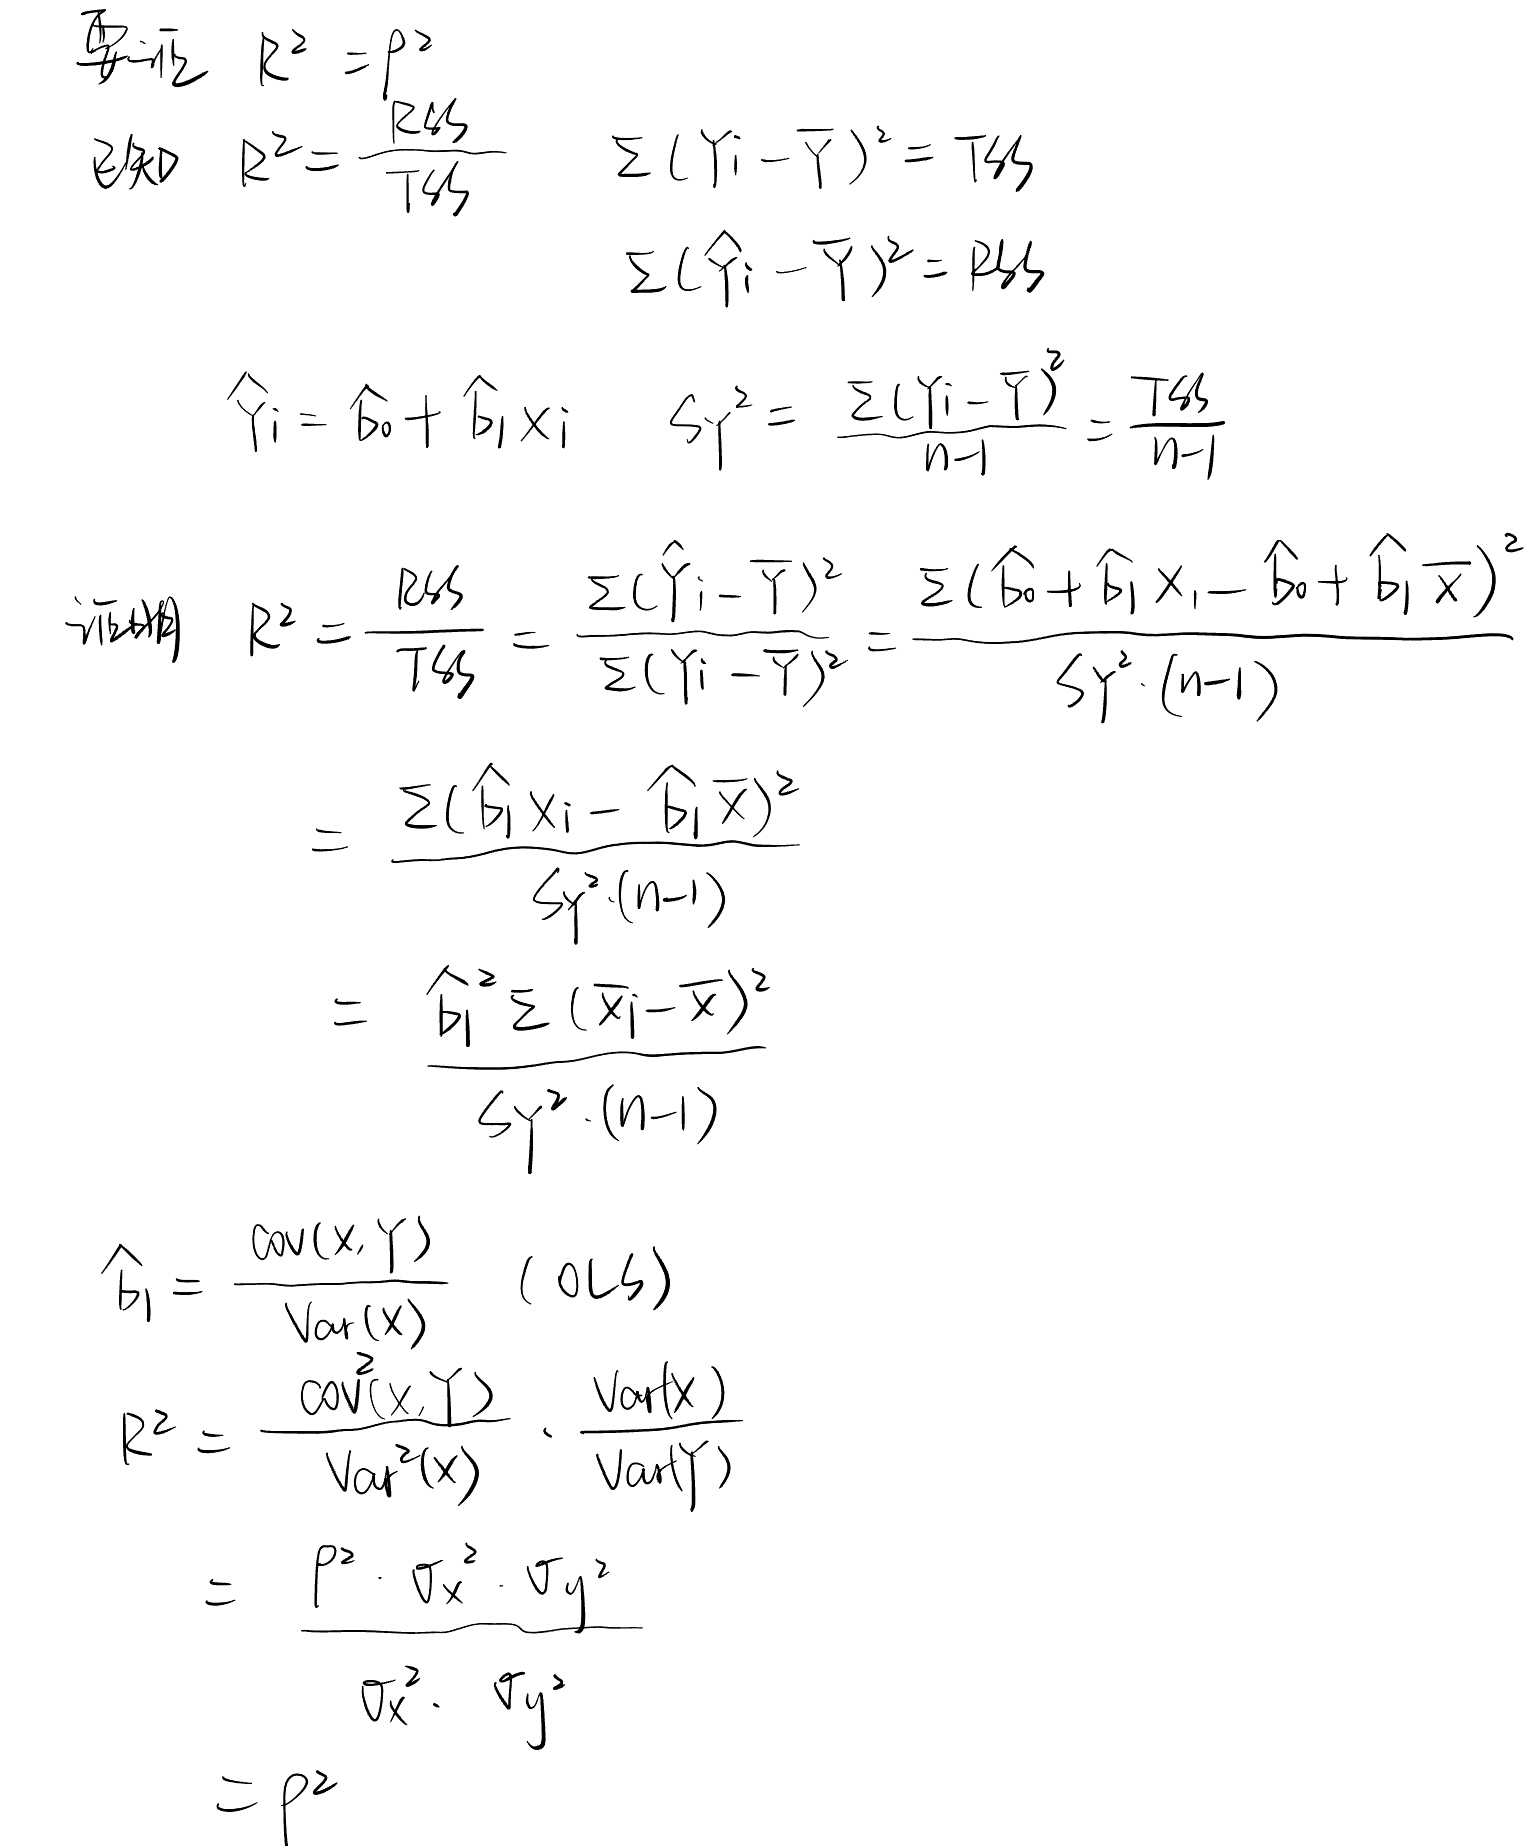 要证 R² = ρ²
已知 R² = RSS/TSS Σ(Yi - Ȳ)² = TSS
Σ(Ŷi - Ȳ)² = RSS
Ŷi = b̂₀ + b̂₁xi Sy² = Σ(Yi - Ȳ)²/(n-1) = TSS/(n-1)
证明 R² = RSS/TSS = Σ(Ŷi - Ȳ)²/Σ(Yi - Ȳ)² = Σ(b̂₀ + b̂₁x₁ - b̂₀ + b̂₁x̄)²/(Sy²·(n-1))
= Σ(b̂₁xi - b̂₁x̄)²/(Sy²·(n-1))
= b̂₁²Σ(x̄i - x̄)²/(Sy²·(n-1))
b̂₁ = cov(x,Y)/Var(x) (OLS)
R² = cov²(x,Y)/Var²(x) · Var(x)/Var(Y)
= ρ²·σx²·σy²/(σx²·σy²)
= ρ²